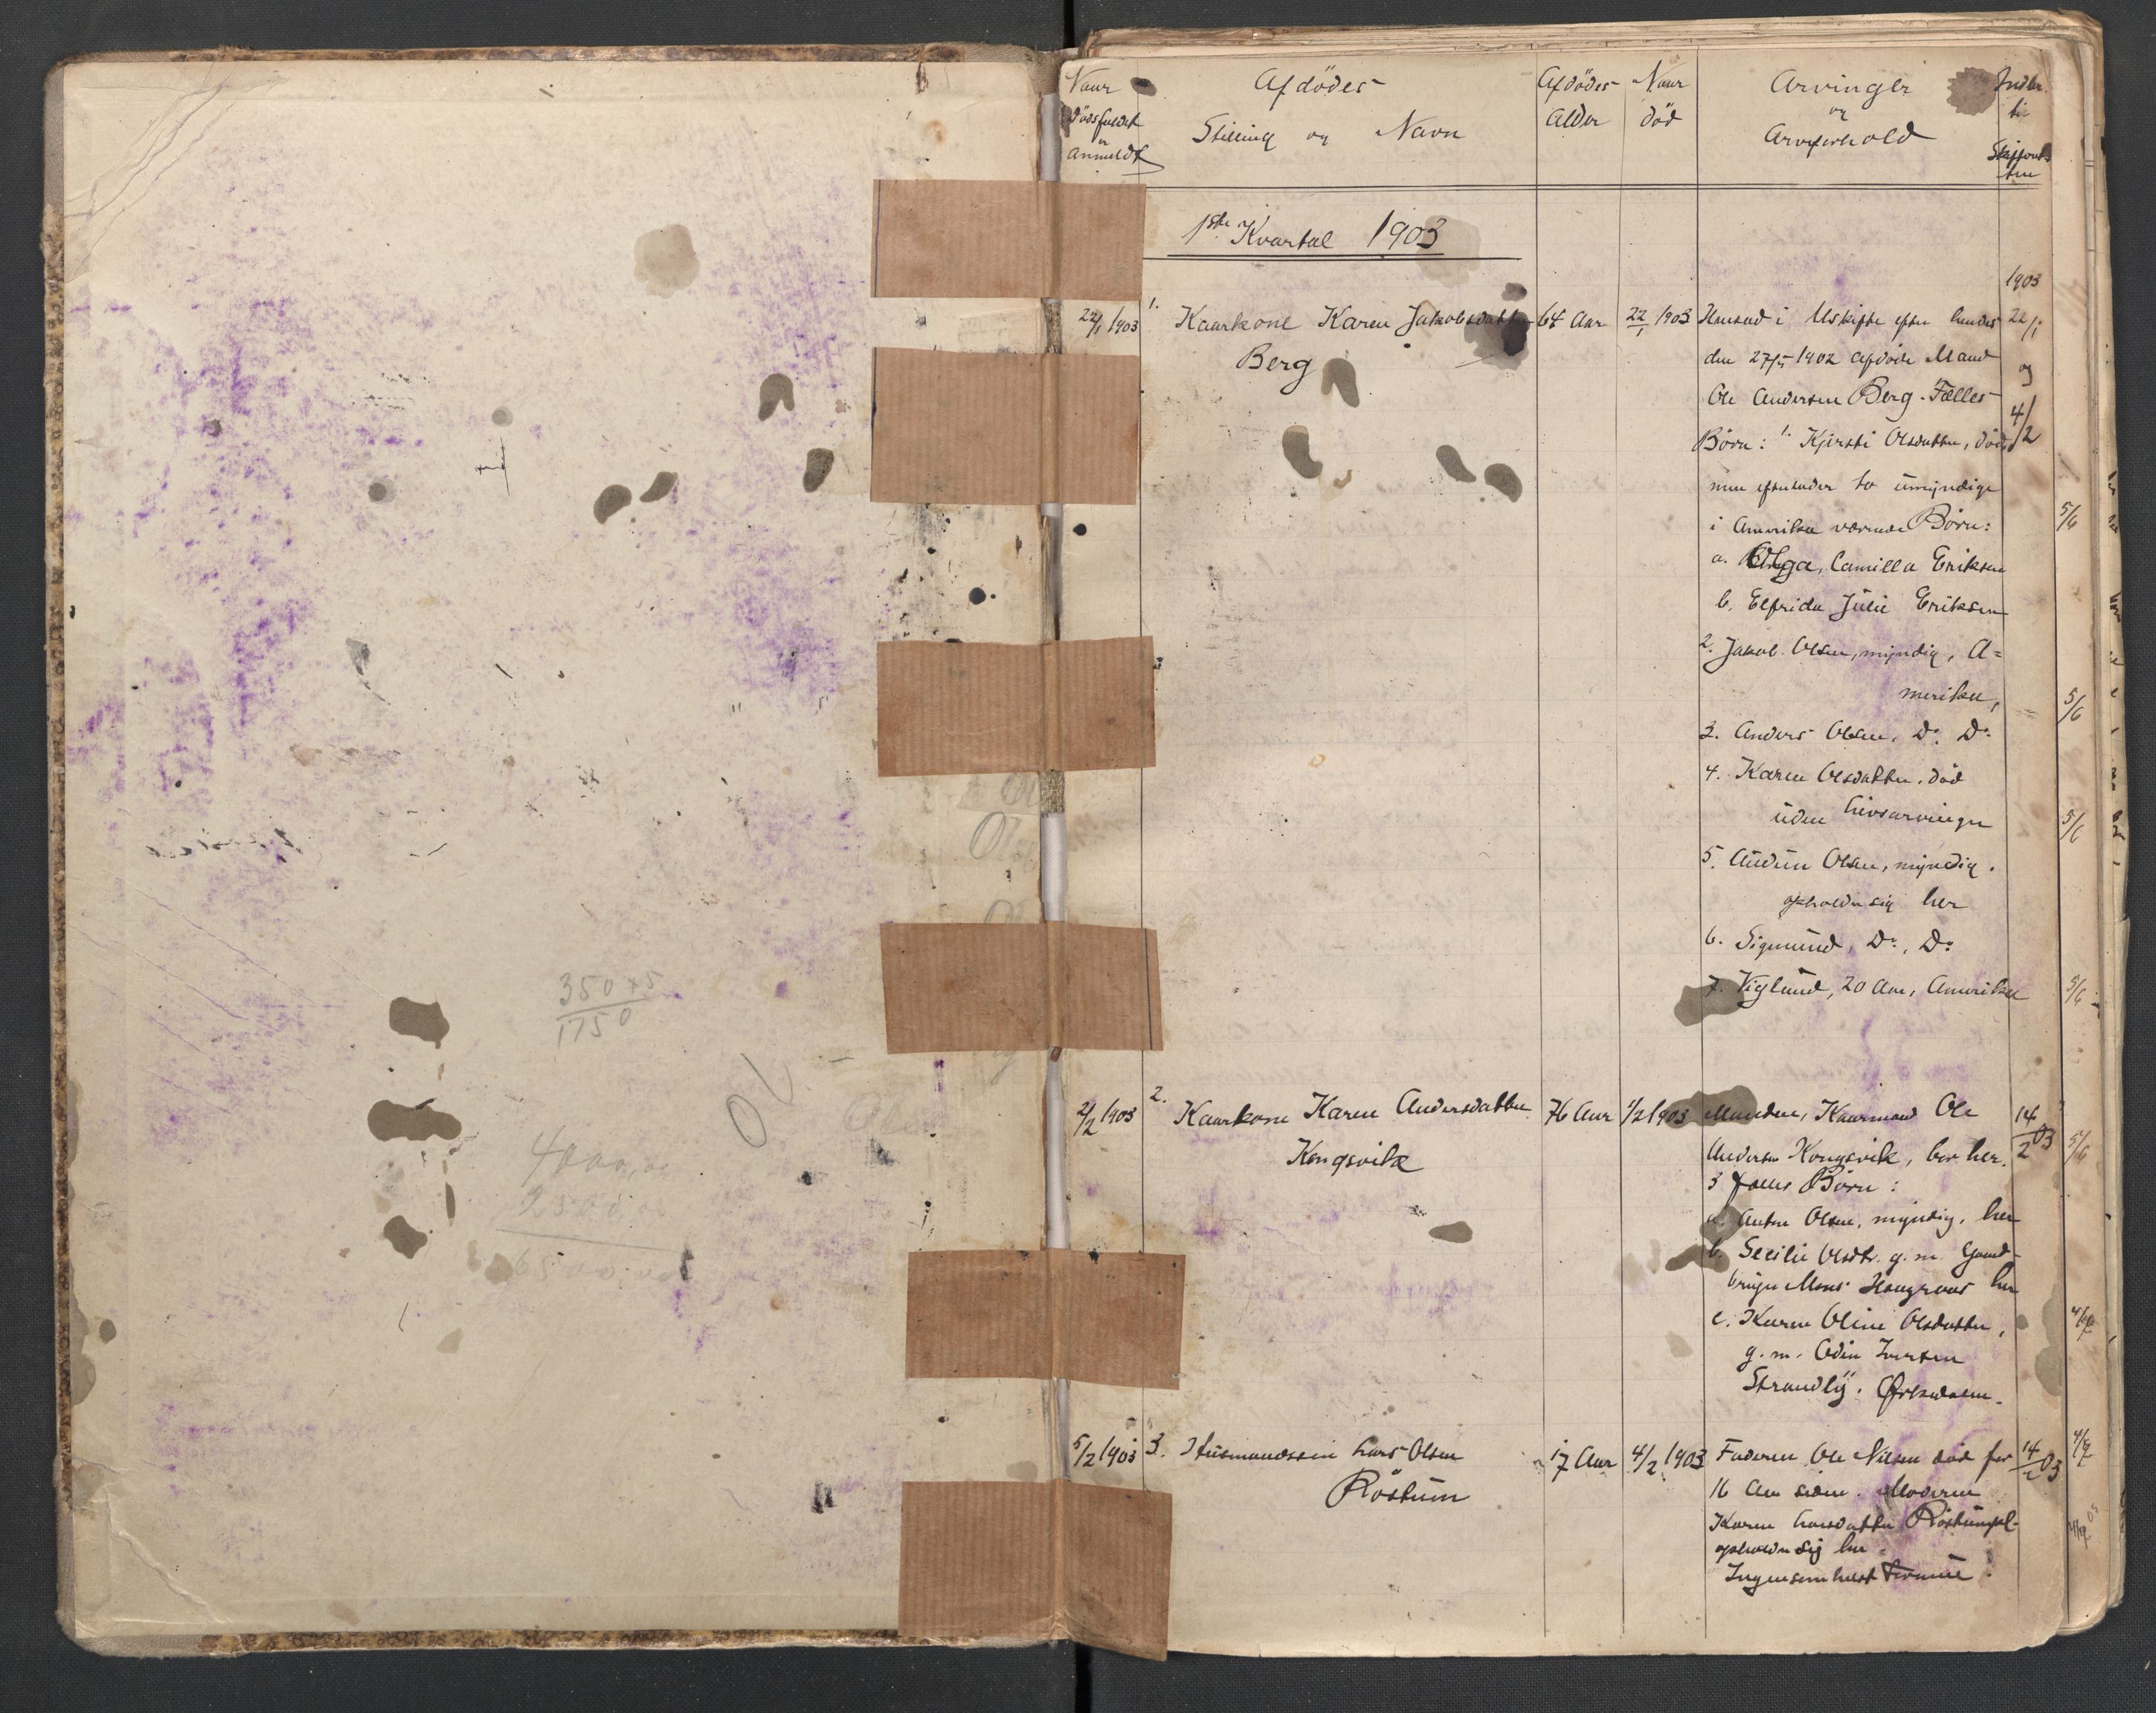 350 x 5
1750
OL
4000,00
2500,00
6500,00
Naar Dödsfaldet er anmeldt
Afdödes Stilling og Navn
Afdödes Alder
Naar död
Arvinger og Arveforhold
Indb. til Skifteretten
1ste Kvartal 1903
1903
22/1 1903 1. Kaarkone Karen Jakobsdatter 64 Aar 22/1 1903 Hensad i Uskifte efter hendes 22/1
Berg den 27/5 1902 afdöde Mand og
Ole Andersen Berg. Fælles 4/2
Börn: 1. Kjersti Olsdatter, död
men efterlader to umyndige
i Amerika værende Börn:
a. Olga, Camilla Eriksen
b. Elfrida Julie Eriksen
2. Jakob Olsen, myndig, A=
merika,
3. Anders Olsen, Do. Do.
4. Karen Olsdatter. död
uden Livsarvinger
5. Audun Olsen, myndig.
opholder sig her
6. Sigmund, Do., Do.
7. Viglund, 20 Aar, Amerika
2/2 1903 2. Kaarkone Karen Andersdatter 76 Aar 1/2 1903 Manden, Kaarmand Ole 14/2 03
Kongsvik Andersen Kongsvik, bor her.
3 fælles Börn:
a. Anton Olsen, myndig, her
b. Secilie Olsdtr. g. m. Gaard-
bruger Mons Haugroas her
c. Karen Oline Olsdatter,
g. m. Odin Iversen
Strandly. Ørlandalen.
5/2 1903 3. Husmandssøn Lars Olsen 17 Aar 4/2 1903 Faderen Ole Nilsen död for 14/2 03
Röstum 16 Aar siden. Moderen
Karen Larsdatter Röstum
opholder sig her.
Ingensomhelst Formue.
5/6
5/6
5/6
5/6
5/6